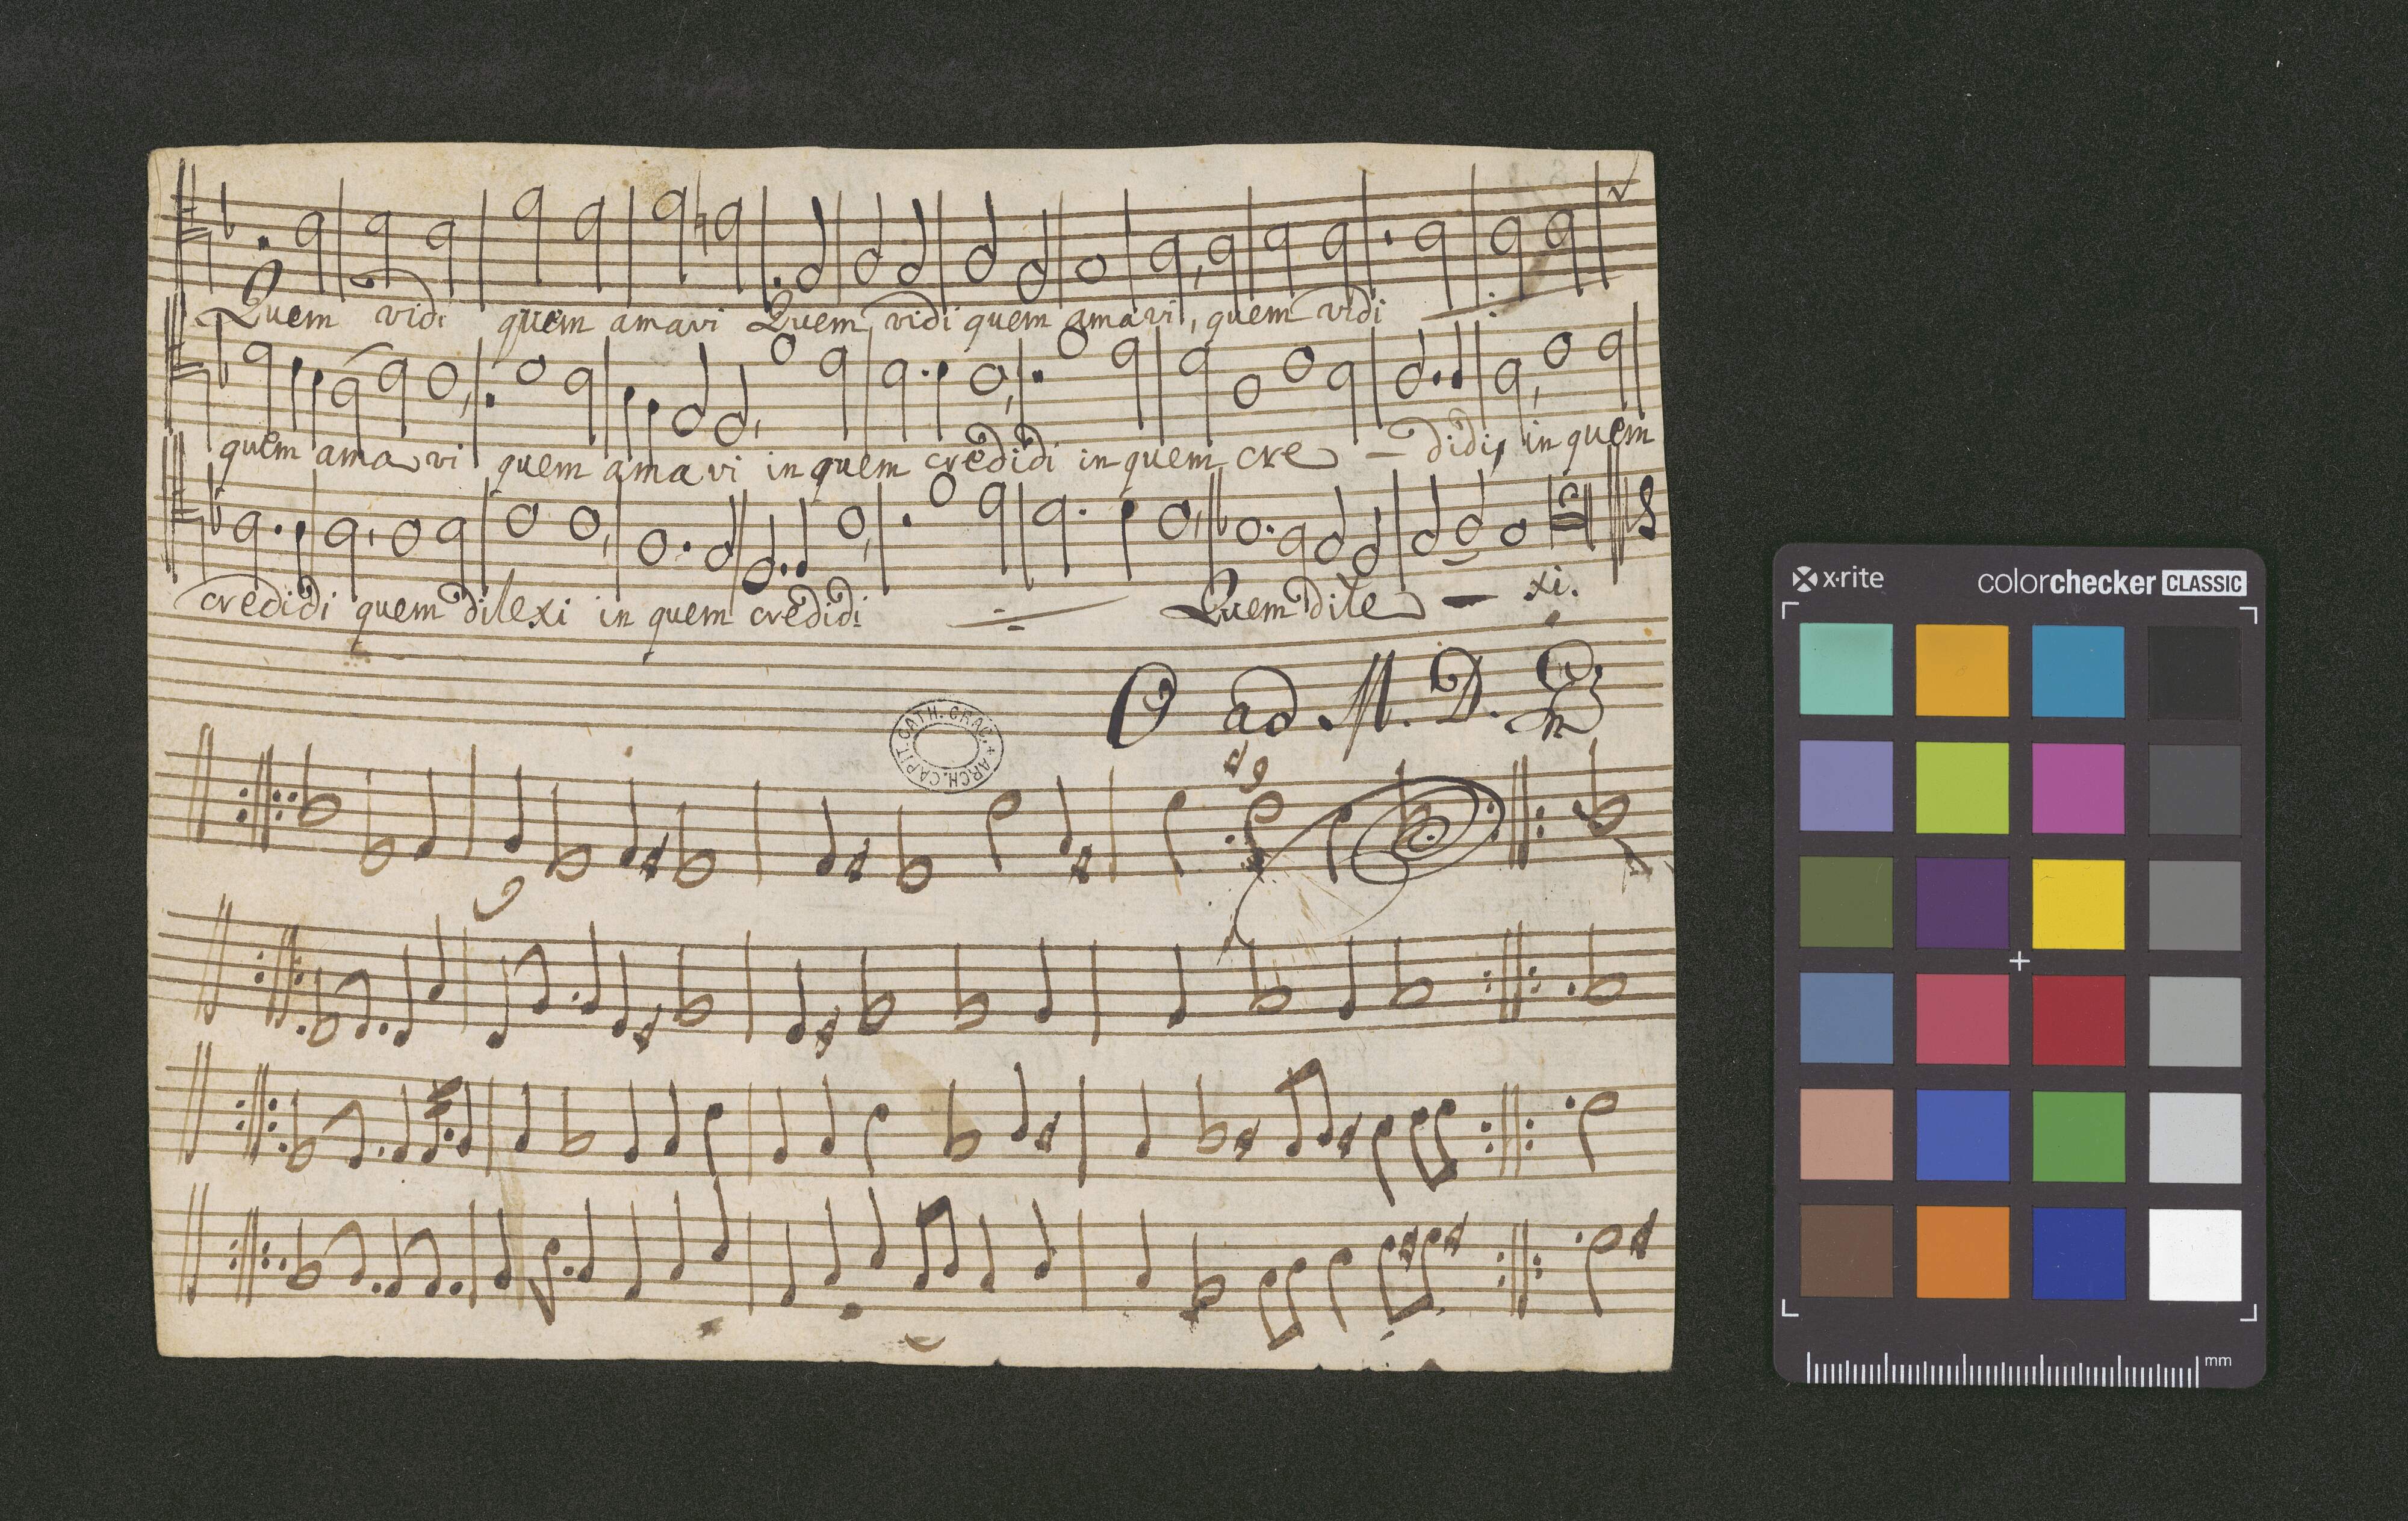 Quem vidi quem amavi Quem vidi quem amavi, quem vidi
quem amavi quem amavi in quem credidi in quem cre – didi, in quem
credidi quem dilexi in quem credidi Quem dile – xi.
O ad M. D. G
ARCH. CAPIT. CATH. CRAC.
x·rite colorchecker CLASSIC
mm